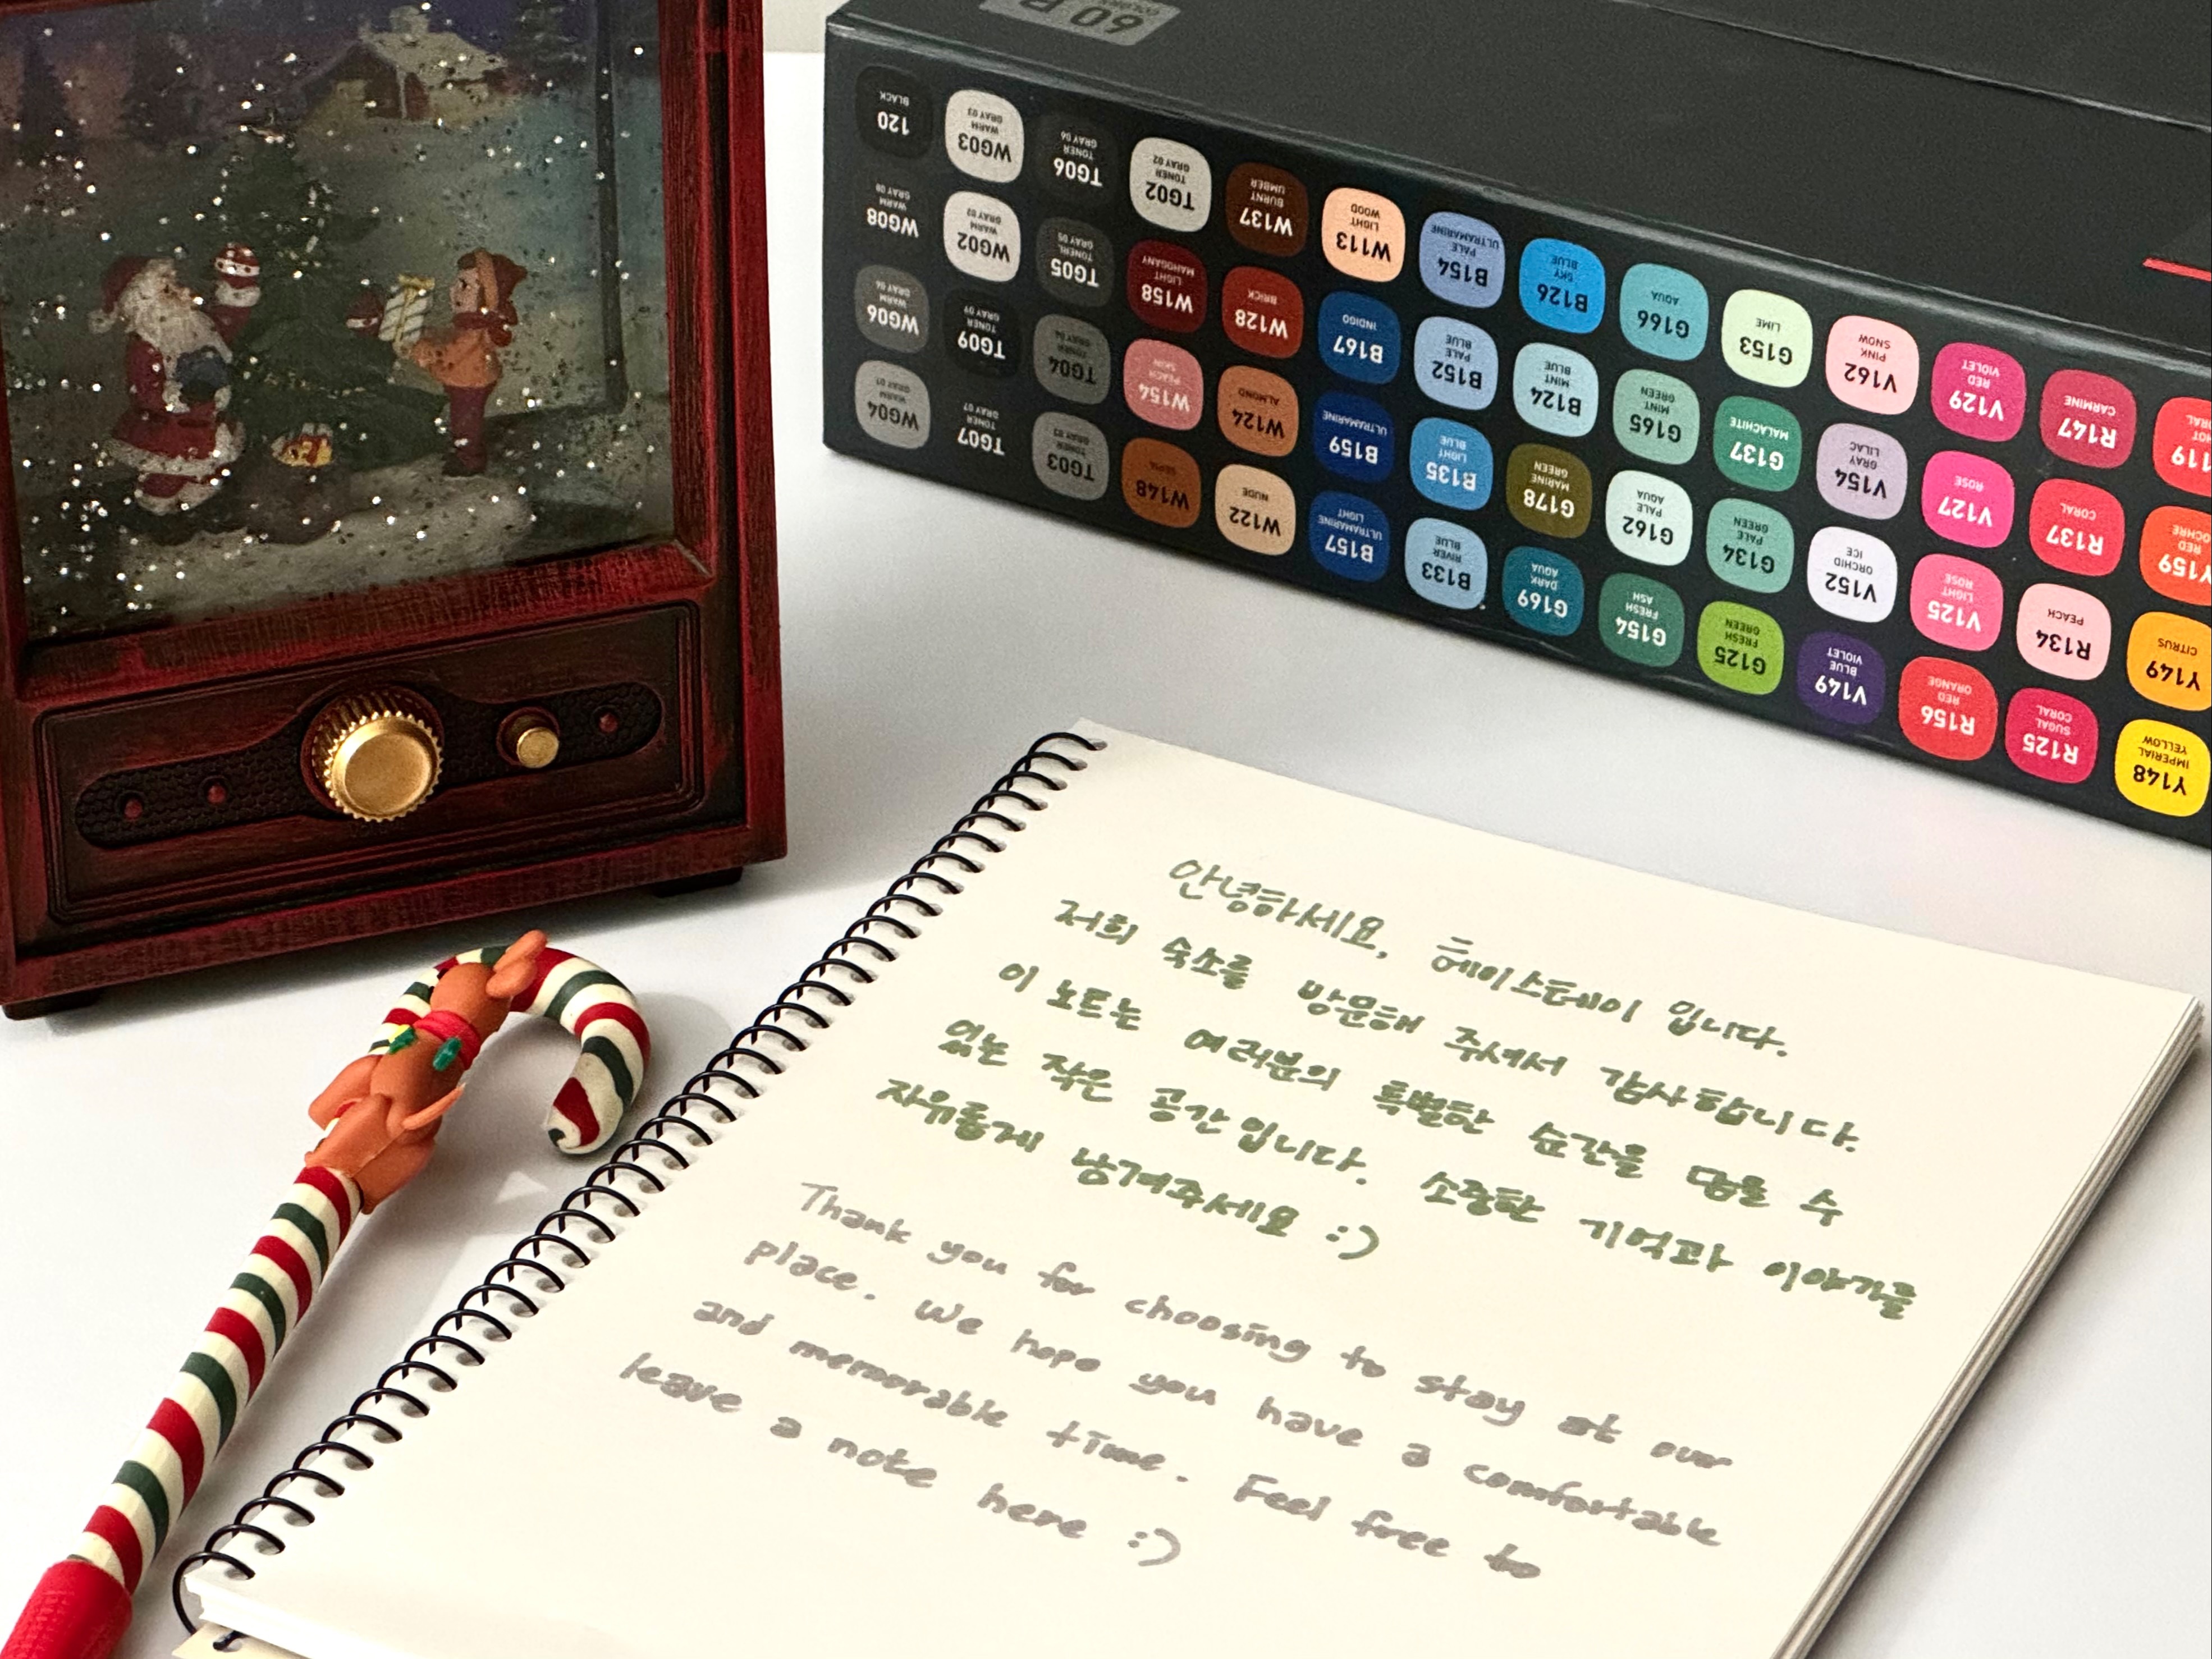 60
120
BLACK
WG03
WARM
GRAY 03
TG06
TONER
GRAY 06
TG02
TONER
GRAY 02
W137
BURNT
UMBER
W113
LIGHT
WOOD
B154
PALE
ULTRAMARINE
B126
SKY
BLUE
G166
AQUA
G153
LIME
V162
PINK
SNOW
V129
RED
VIOLET
R147
CARMINE
WG08
WARM
GRAY 08
WG02
WARM
GRAY 02
TG05
TONER
GRAY 05
W158
LIGHT
MAHOGANY
W128
BRICK
B167
INDIGO
B152
PALE
BLUE
B124
MINT
BLUE
G165
MINT
GREEN
G137
MALACHITE
V154
GRAY
LILAC
V127
ROSE
R137
CORAL
WG06
WARM
GRAY 06
TG09
TONER
GRAY 09
TG04
TONER
GRAY 04
W154
PEACH
SKIN
W124
ALMOND
B159
ULTRAMARINE
B135
LIGHT
BLUE
G178
MARINE
GREEN
G162
PALE
AQUA
G134
PALE
GREEN
V152
ORCHID
ICE
V125
LIGHT
ROSE
R134
PEACH
Y149
CITRUS
WG04
WARM
TG07
TONER
GRAY 07
TG03
TONER
GRAY 03
W148
SEPIA
W122
NUDE
B157
ULTRAMARINE
LIGHT
B133
RIVER
BLUE
G169
DARK
AQUA
G154
FRESH
ASH
G125
FRESH
GREEN
V149
BLUE
VIOLET
R156
RED
ORANGE
R125
SUGAL
CORAL
Y148
IMPERIAL
YELLOW
안녕하세요, 헤이스테이 입니다.
저희 숙소를 방문해 주셔서 감사합니다.
이 노트는 여러분의 특별한 순간을 담을 수
있는 작은 공간입니다. 소중한 기억과 이야기를
자유롭게 남겨주세요 :)
Thank you for choosing to stay at our
place. We hope you have a comfortable
and memorable time. Feel free to
leave a note here :)